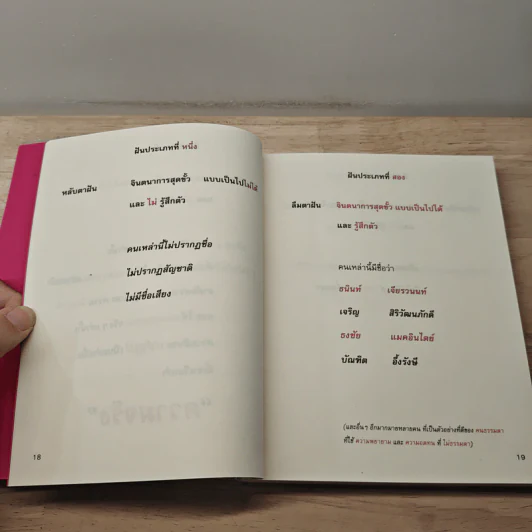 ฝันประเภทที่ หนึ่ง
หลับตาฝัน จินตนาการสุดขั้ว แบบเป็นไปไม่ได้
และ ไม่ รู้สึกตัว
คนเหล่านี้ไม่ปรากฏชื่อ
ไม่ปรากฏสัญชาติ
ไม่มีชื่อเสียง
18
ฝันประเภทที่ สอง
ลืมตาฝัน จินตนาการสุดขั้ว แบบเป็นไปได้
และ รู้สึกตัว
คนเหล่านี้มีชื่อว่า
ธนินท์ เจียรวนนท์
เจริญ สิริวัฒนภักดี
ธงชัย แมคอินไตย์
บัณฑิต อึ้งรังษี
(และอื่นๆ อีกมากมายหลายคน ที่เป็นตัวอย่างที่ดีของ คนธรรมดา
ที่ใช้ ความพยายาม และ ความอดทน ที่ ไม่ธรรมดา)
19